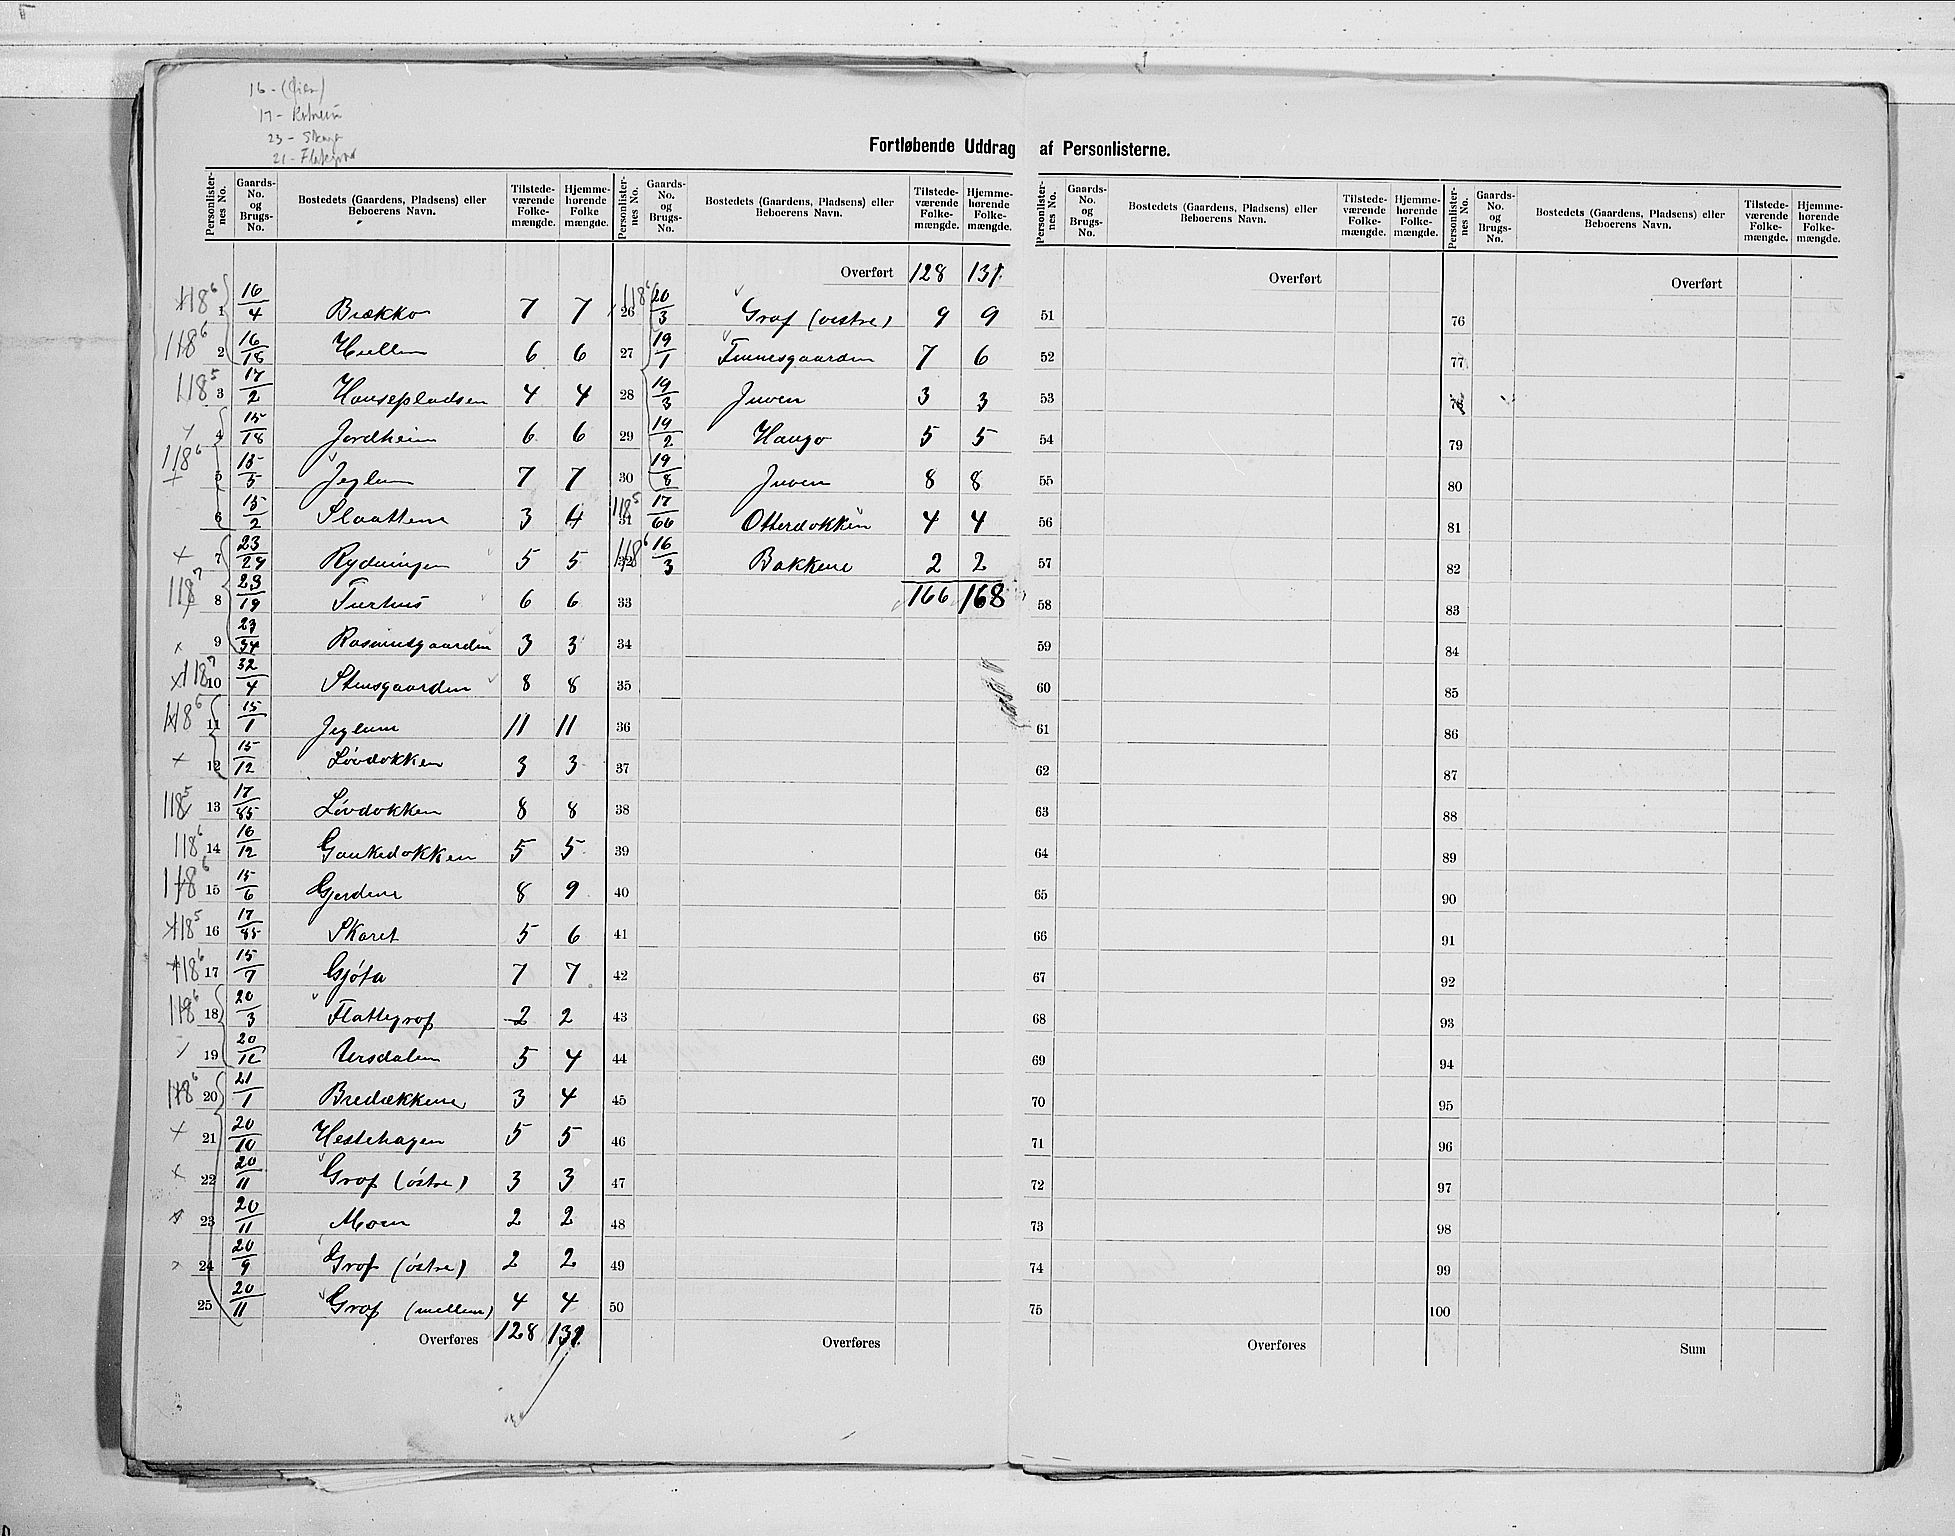 17-
23-
21-
Fortløbende Uddrag af Personlisterne.
Personlister-nes No. | Gaards-No. og Brugs-No. | Bostedets (Gaardens, Pladsens) eller Beboerens Navn. | Tilstede-værende Folke-mængde. | Hjemme-hørende Folke mængde.
118⁶ 1 16/4 Brækko 7 7
118⁶ 2 16/18 6 6
118⁵ 3 17/2 Hansepladsen 4 4
4 15/18 Jordheim 6 6
118⁶ 5 15/5 Jeglum 7 7
6 15/2 Slaattene 3 4
7 23/29 Rydningen 5 5
118⁷ 8 23/19 6 6
9 23/34 Rasmusgaarden 3 3
118⁷ 10 32/4 Stensgaarden 8 8
118⁶ 11 15/1 Jeglum 11 11
12 15/12 Løvdokken 3 3
118⁵ 13 17/85 Løvdokken 8 8
118⁶ 14 16/12 Gaukedokken 5 5
118⁶ 15 15/6 Gjerdene 8 9
118⁵ 16 17/85 Skaret 5 6
118⁶ 17 15/7 Gjøta 7 7
118⁶ 18 20/3 Flattegrof 2 2
19 20/12 Ursdalen 5 4
118⁶ 20 21/1 Bredækkene 3 4
21 20/10 Hestehagen 5 5
22 20/11 Grof (østre) 3 3
23 20/11 Moen 2 2
24 20/9 Grof (østre) 2 2
25 20/11 Grof (mellem) 4 4
Overføres 128 131.
Personlister-nes No. | Gaards-No. og Brugs-No. | Bostedets (Gaardens, Pladsens) eller Beboerens Navn. | Tilstede-værende Folke-mængde. | Hjemme-hørende Folke-mængde.
Overført 128 131.
118⁶ 26 20/3 Grof (vestre) 9 9
27 19/1 Finnesgaarden 7 6
28 19/3 Juven 3 3
29 19/2 Haugo 5 5
30 19/8 Juven 8 8
118⁵ 31 17/66 Otterdokken 4 4
118⁶ 32 16/3 Bakkene 2 2
33 166 168
34
35
36
37
38
39
40
41
42
43
44
45
46
47
48
49
50
Overføres
Personlister-nes No. | Gaards-No. og Brugs-No. | Bostedets (Gaardens, Pladsens) eller Beboerens Navn. | Tilstede-værende Folke-mængde. | Hjemme-hørende Folke-mængde.
Overført
51
52
53
54
55
56
57
58
59
60
61
62
63
64
65
66
67
68
69
70
71
72
73
74
75
Overføres
Personlister-nes No. | Gaards-No. og Brugs-No. | Bostedets (Gaardens, Pladsens) eller Beboerens Navn. | Tilstede-værende Folke-mængde. | Hjemme-hørende Folke-mængde.
Overført
76
77
78
79
80
81
82
83
84
85
86
87
88
89
90
91
92
93
94
95
96
97
98
99
100
Sum